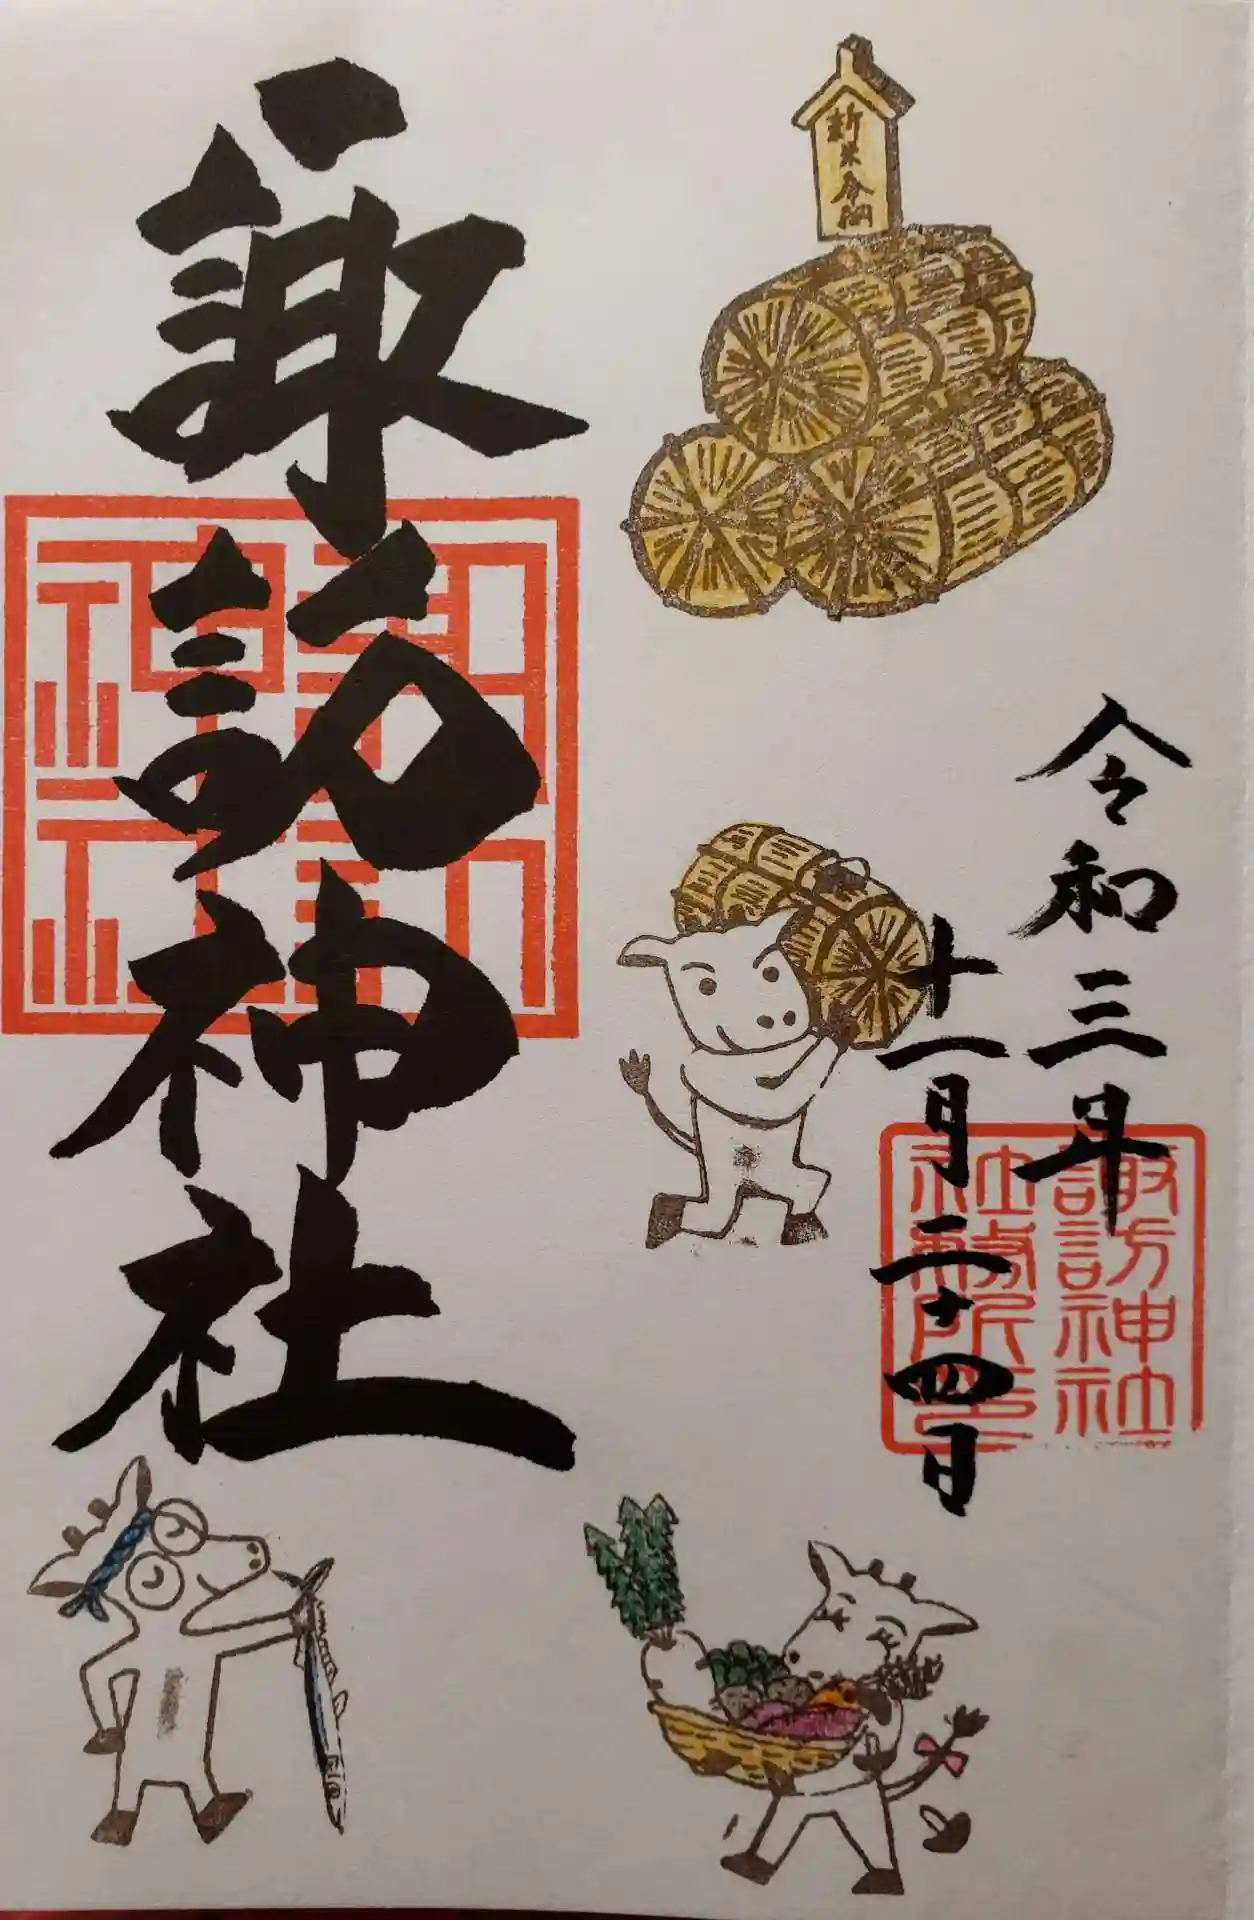 令和三年
十一月二十四日
諏訪神社
諏訪神社
社務所印
諏訪
神社